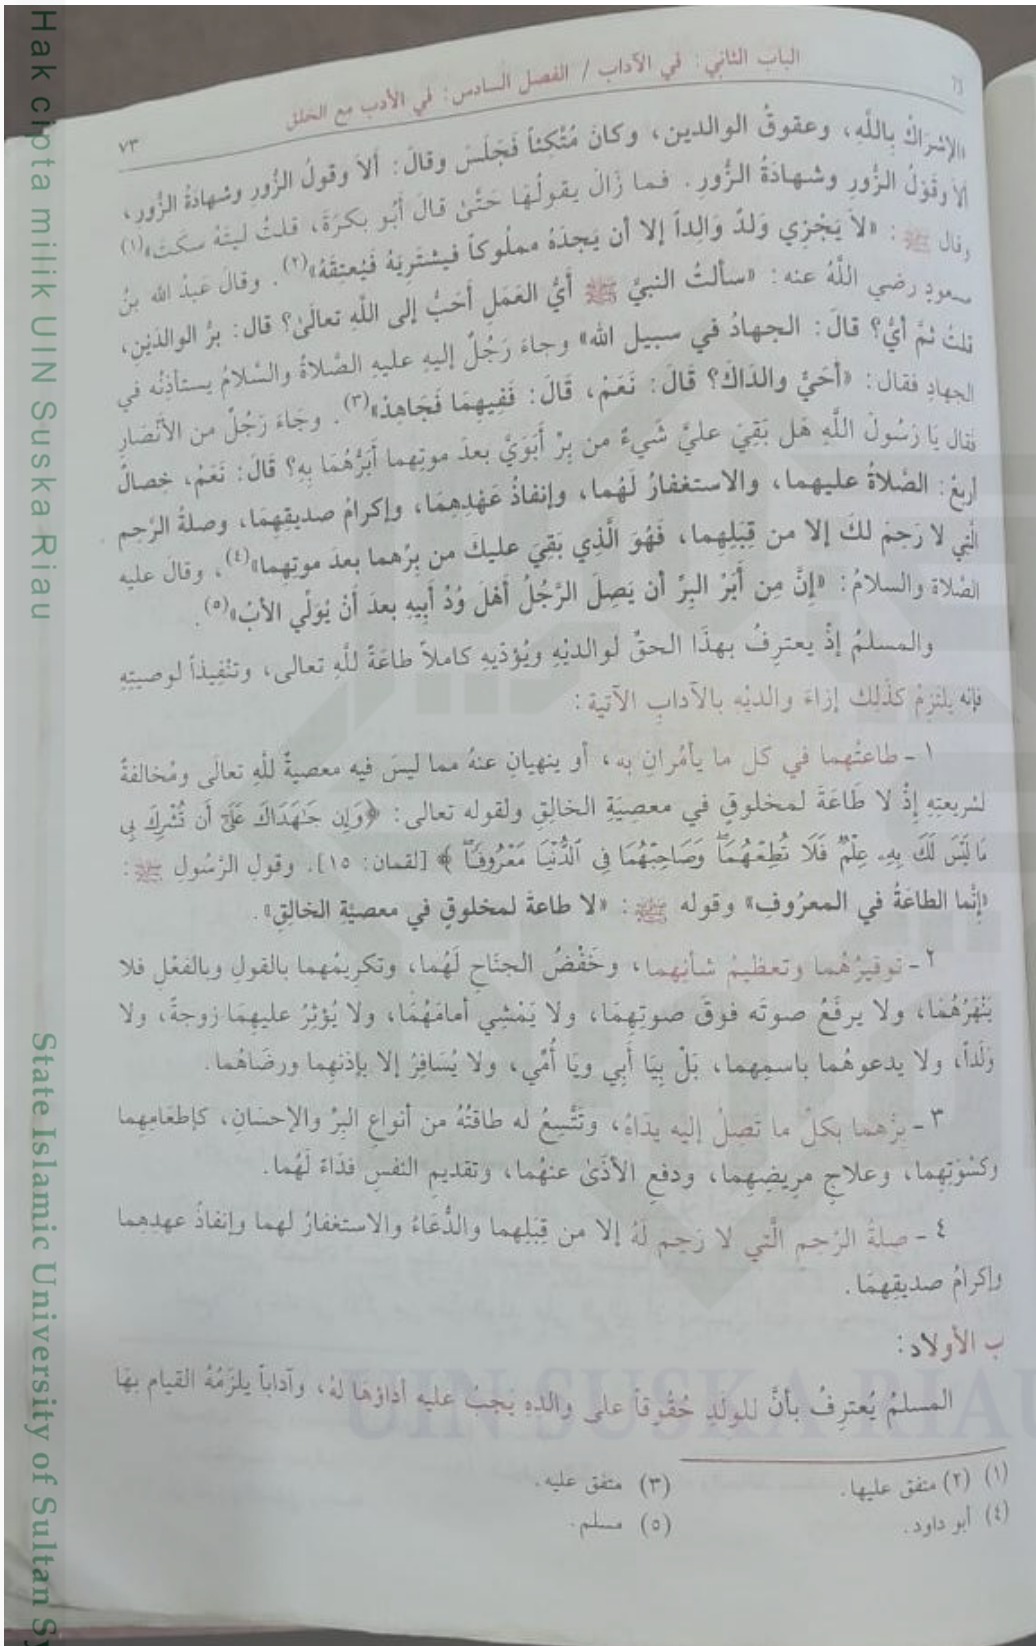 الباب الثاني: في الآداب / الفصل السادس: في الأدب مع الخلق
٧٣
«الإشرَاكُ بِاللَّهِ، وعقوقُ الوالدين، وكانَ مُتَّكِئاً فَجَلَسَ وقالَ: أَلاَ وقولُ الزُّورِ وشهادَةُ الزُّورِ،
ألاَ وقَوْلُ الزُّورِ وشهادَةُ الزُّورِ. فما زَالَ يقولُهَا حَتَّىٰ قالَ أَبُو بكرَةَ، قلتُ ليتَهُ سكَتَ»(١)
وقال ﷺ: «لاَ يَجْزِي وَلدٌ وَالِداً إلا أن يَجدَهُ مملُوكاً فيشتَرِيَهُ فَيُعتِقَهُ»(٢). وقالَ عَبدُ الله بنُ
مسعودٍ رضي اللَّهُ عنه: «سألتُ النبيَّ ﷺ أَيُّ العَمَلِ أَحَبُّ إلى اللَّهِ تعالَىٰ؟ قال: برُّ الوالدَينِ،
قلتُ ثمَّ أيُّ؟ قالَ: الجهادُ في سبيل الله» وجاءَ رَجُلٌ إليهِ عليهِ الصَّلاةُ والسَّلامُ يستأذِنُه في
الجهادِ فقال: «أحَيٌّ والدَاكَ؟ قَالَ: نَعَمْ، قَالَ: فَفِيهِمَا فَجَاهِدْ»(٣). وجَاءَ رَجُلٌ من الأَنْصَارِ
فَقال يَا رَسُولَ اللَّهِ هَل بَقِيَ عليَّ شَيءٌ من بِرِّ أَبَوَيَّ بعدَ موتِهما أَبَرُّهُمَا بِهِ؟ قَالَ: نَعَمْ، خِصالٌ
أربعٌ: الصَّلاةُ عليهما، والاستغفارُ لَهُما، وإنفاذُ عَهْدِهِمَا، وإكرامُ صديقِهِمَا، وصلةُ الرَّحِم
الَّتِي لا رَحِمَ لكَ إلا من قِبَلِهِما، فَهُوَ الَّذِي بَقِيَ عليكَ من بِرِّهما بعدَ موتِهما»(٤). وقالَ عليه
الصَّلاة والسلامُ: «إنَّ مِن أَبَرِّ البِرِّ أن يَصِلَ الرَّجُلُ أَهْلَ وُدِّ أَبِيهِ بعدَ أَنْ يُوَلِّي الأبُ»(٥).
والمسلمُ إذْ يعترِفُ بهذَا الحقِّ لوالديْهِ ويُؤدِّيهِ كاملاً طاعَةً للَّهِ تعالى، وتنْفِيذاً لوصيتِهِ
فإنه يلتَزِمُ كذَلِك إزاءَ والديْه بالآدابِ الآتية:
١ - طاعتُهما في كل ما يأمُرانِ به، أو ينهيانِ عنهُ مما ليسَ فيه معصيةٌ للَّهِ تعالَى ومُخالفةٌ
لشريعتِهِ إذْ لا طَاعَةَ لمخلوقٍ في معصِيَةِ الخالِقِ ولقوله تعالى: ﴿وَإِن جَٰهَدَاكَ عَلَىٰٓ أَن تُشْرِكَ بِى
مَا لَيْسَ لَكَ بِهِۦ عِلْمٌ فَلَا تُطِعْهُمَا ۖ وَصَاحِبْهُمَا فِى ٱلدُّنْيَا مَعْرُوفًا ۖ﴾ [لقمان: ١٥]. وقولِ الرَّسُولِ ﷺ:
«إنَّما الطاعَةُ في المعرُوف» وقوله ﷺ: «لا طاعةَ لمخلوقٍ في معصيَّةِ الخالِقِ».
٢ - توقيرُهُما وتعظيمُ شأنِهما، وخَفْضُ الجنَاحِ لَهُما، وتكرِيمُهما بالقولِ وبالفعْلِ فلا
يَنْهَرُهُمَا، ولا يرفَعُ صوتَه فوقَ صوتِهِمَا، ولا يَمْشِي أمامَهُمَا، ولا يُؤثِرُ عليهِمَا زوجةً، ولا
وَلَداً، ولا يدعوهُما باسمِهما، بَلْ بِيَا أَبِي ويَا أُمِّي، ولا يُسَافِرُ إلا بإذنهِما ورضَاهُما.
٣ - بِرُّهما بكلِّ ما تَصلُ إليه يدَاهُ، وتَتَّسِعُ له طاقتُهُ من أنواعِ البِرِّ والإحسَانِ، كإطعَامِهِما
وكسْوَتِهِما، وعلاجِ مرِيضِهِما، ودفعِ الأذَىٰ عنهُما، وتقديمِ النفسِ فدَاءً لَهُما.
٤ - صلةُ الرَّحِمِ الَّتي لا رَحِم لَهُ إلا من قِبَلِهما والدُّعَاءُ والاستغفارُ لهما وإنفاذُ عهدِهِما
وإكرامُ صديقِهمَا.
ب الأولاد:
المسلمُ يُعترِفُ بأنَّ للولَدِ حُقُوقاً على والدِهِ يَجبُ عليه أدَاؤهَا لهُ، وآداباً يلزَمُهُ القيام بهَا
(١) (٢) متفق عليها.
(٣) متفق عليه.
(٤) أبو داود.
(٥) مسلم.
Hak cipta milik UIN Suska Riau
State Islamic University of Sultan Sy
UIN SUSKA RIAU